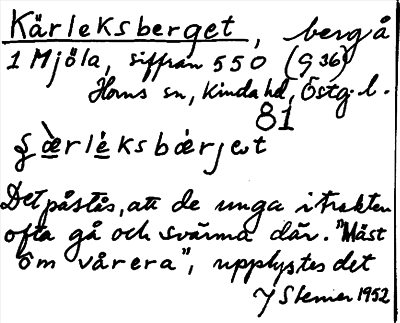 Kärleksberget, berg å
1 Mjöla, siffran 550 (G 36)
Horns sn, Kinda hd, Östg. l.
81
ʃæ̀rléksbærjet
Det påstås, att de unga i trakten
ofta gå och svärma där. "Mäst
om vårera", upplystes det
J Stemer 1952